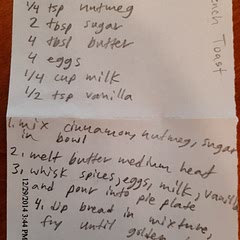 French Toast
1/4 tsp nutmeg
2 tbsp sugar
4 tbsl butter
4 eggs
1/4 cup milk
1/2 tsp vanilla
1. mix cinnamon, nutmeg, sugar
in bowl
2. melt butter medium heat
3. whisk spices, eggs, milk, vanilla
and pour into pie plate
4. dip bread in mixture,
fry until golden
12/29/2014 3:44 PM